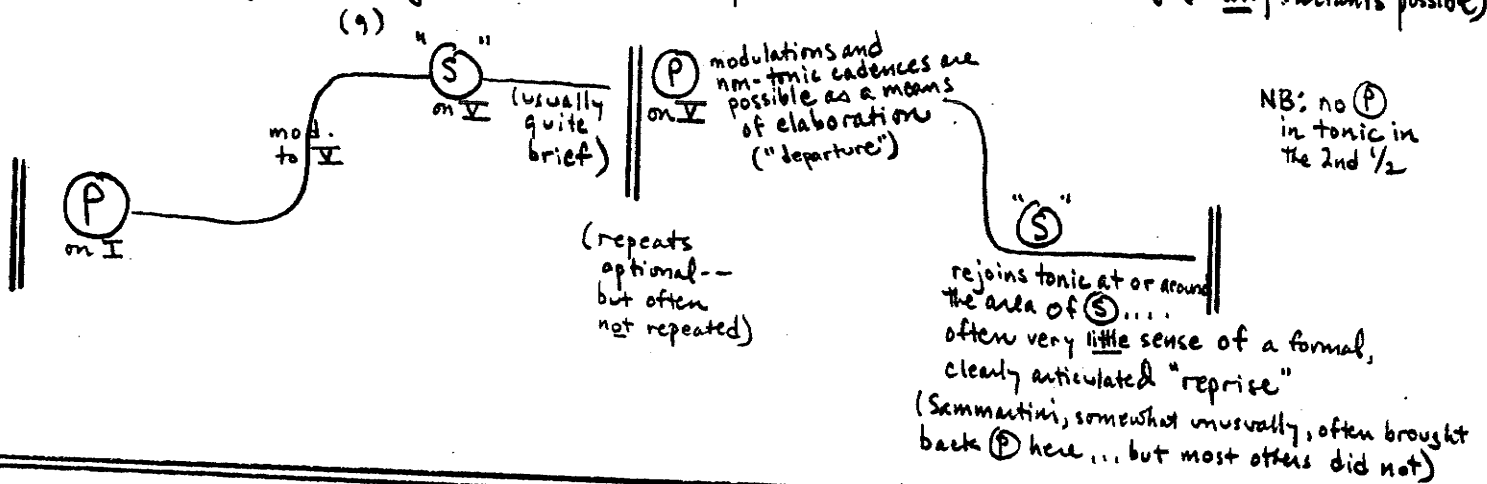 any variants possible)
(9)
"Ⓢ"
on V
(usually
quite
brief)
mod.
to V
Ⓟ
on I
Ⓟ
on V
modulations and
nm-tonic cadences are
possible as a means
of elaboration
("departure")
NB: no Ⓟ
in tonic in
the 2nd 1/2
(repeats
optional--
but often
not repeated)
"Ⓢ"
rejoins tonic at or around
the area of Ⓢ....
often very little sense of a formal,
clearly articulated "reprise"
(Sammartini, somewhat unusually, often brought
back Ⓟ here... but most others did not)